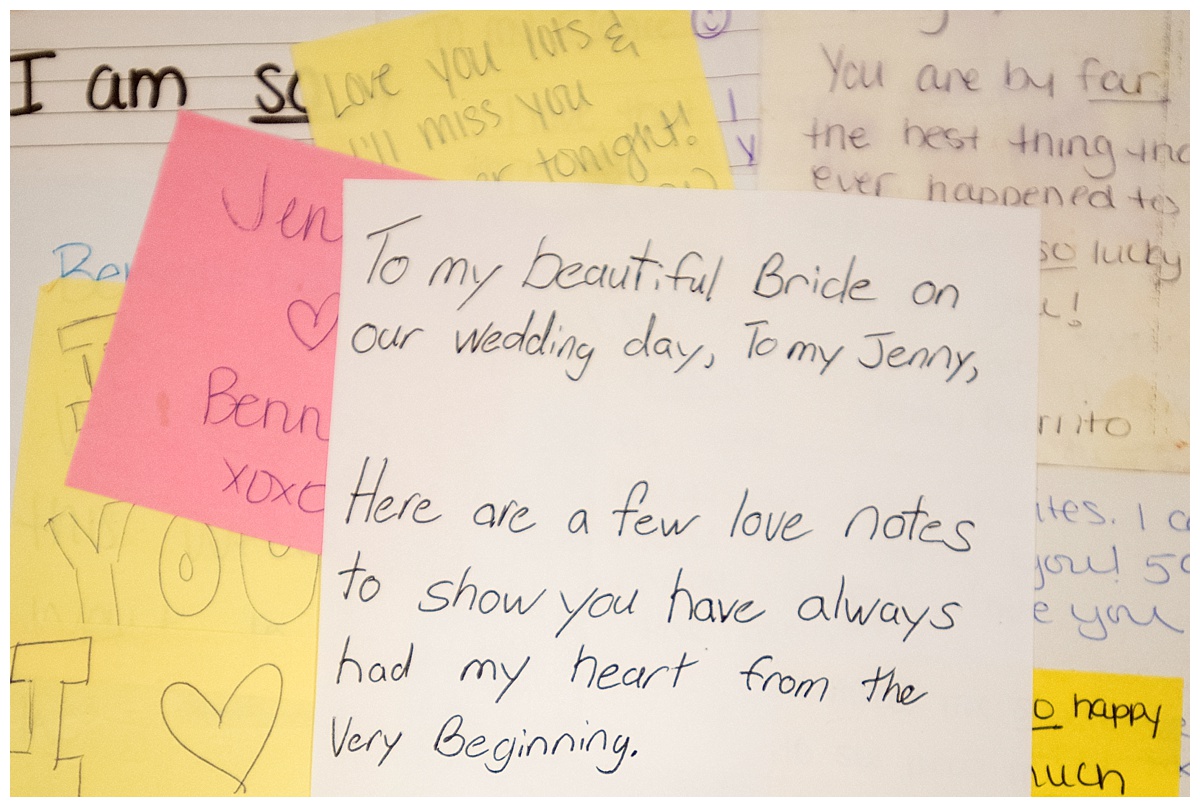 I am
Love you lots &
I'll miss you
tonight!
You are by far
the best thing
ever happened to
so lucky
Jen
Benn
xoxo
To my beautiful Bride on
our wedding day, To my Jenny,
Here are a few love notes
to show you have always
had my heart from the
Very Beginning.
YOU
I
you!
you
happy